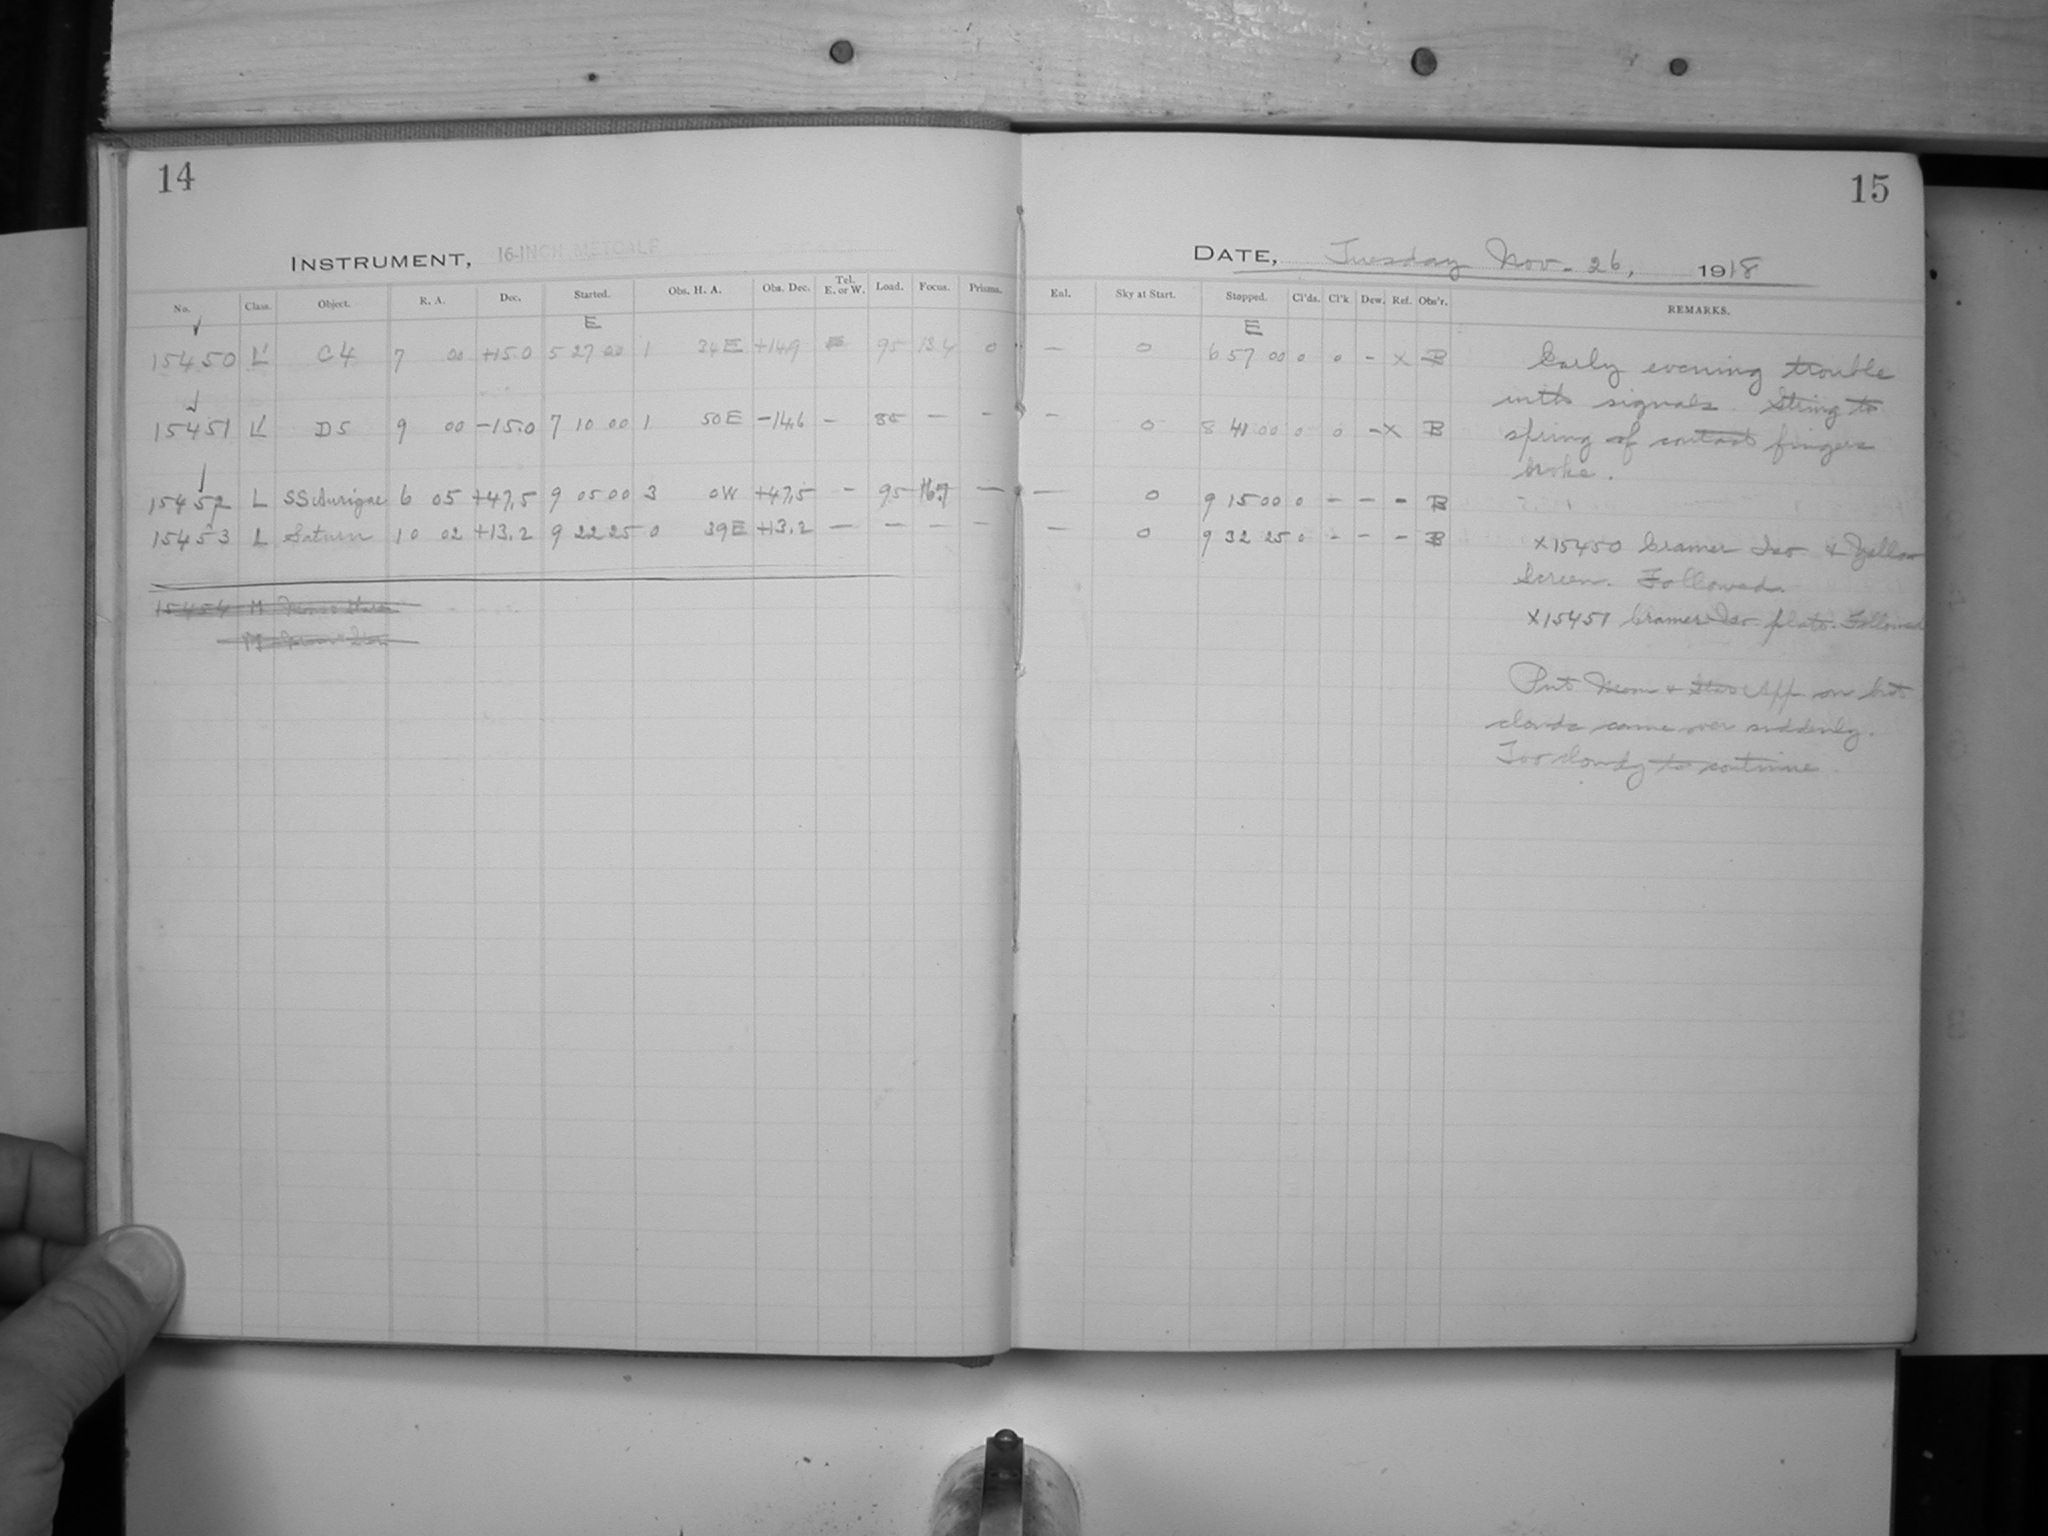 14
15
INSTRUMENT, 16-INCH METCALF
DATE, Tuesday Nov. 26, 1918
No. Class. Object. R. A. Dec. Started. Obs. H. A. Obs. Dec. Tel. E. or W. Load. Focus. Prisms. Enl. Sky at Start. Stopped. Cl'ds. Cl'k Dew. Ref. Obs'r. REMARKS.
E E
15450 L' C4 7 00 +15.0 5 27 00 1 34E +14.9 E 95 13.4 0 — 0 6 57 00 0 0 - X B
15451 L' D5 9 00 -15.0 7 10 00 1 50E -14.6 - 85 — — — 0 8 41 00 0 0 - X B
15452 L SS Aurigae 6 05 +47.5 9 05 00 3 0W +47.5 - 95 16.7 — — 0 9 15 00 0 - - - B
15453 L Saturn 10 02 +13.2 9 22 25 0 39E +13.2 — — — — — 0 9 32 25 0 - - - B
15454 M Moon & Stars
M Moon & Stars
Early evening trouble
with signals. String to
spring of contact fingers
broke.
X15450 Cramer Iso & Yellow
Screen. Followed.
X15451 Cramer Iso plate. Followed
Put Moon & Star App. on but
clouds came over suddenly.
Too cloudy to continue.